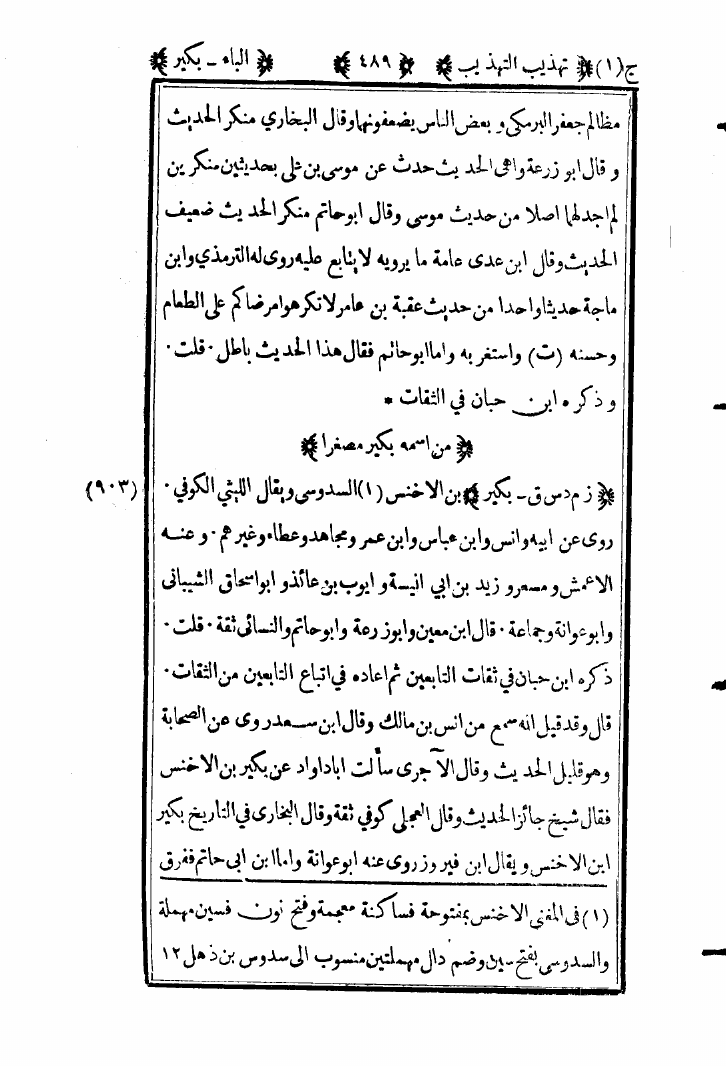 ج(١) ﴿ تهذيب التهذيب ﴾ ﴿ ٤٨٩ ﴾ ﴿ الباء ـ بكير ﴾
مظالم جعفر البرمكى و بعض الناس يضعفونها وقال البخاري منكر الحديث
و قال ابو زرعة واهى الحديث حدث عن موسى بن على بحديثين منكرين
لم اجد لهما اصلا من حديث موسى وقال ابوحاتم منكر الحديث ضعيف
الحديث وقال ابن عدى عامة ما يرويه لا يتابع عليه روى له الترمذي وابن
ماجة حديثا واحدا من حديث عقبة بن عامر لا تكرهوا مرضاكم على الطعام
وحسنه (ت) واستغربه واما ابوحاتم فقال هذا الحديث باطل · قلت ·
و ذكره ابن حبان في الثقات *
﴿ من اسمه بكير مصغرا ﴾
﴿ ز م د س ق ـ بكير ﴾ بن الاخنس (١) السدوسي ويقال الليثي الكوفي · (٩٠٣)
روى عن ابيه وانس وابن عباس وابن عمر ومجاهد وعطاء وغيرهم · وعنه
الاعمش و مسعر و زيد بن ابي انيسة و ايوب بن عائذ و ابو اسحاق الشيبانى
وابوعوانة وجماعة · قال ابن معين وابوزرعة وابوحاتم والنسائى ثقة · قلت ·
ذكره ابن حبان في ثقات التابعين ثم اعاده في اتباع التابعين من الثقات ·
قال وقد قيل انه سمع من انس بن مالك وقال ابن سعد روى عن الصحابة
وهو قليل الحديث وقال الآجرى سألت اباداواد عن بكير بن الاخنس
فقال شيخ جائز الحديث وقال العجلى كوفي ثقة وقال البخارى في التاريخ بكير
ابن الاخنس و يقال ابن فيروز روى عنه ابوعوانة واما ابن ابى حاتم ففرق
(١) فى المغنى الاخنس بمفتوحة فساكنة معجمة وفتح نون فسين مهملة
والسدوسي بفتح سين وضم دال مهملتين منسوب الى سدوس بن ذهل ١٢